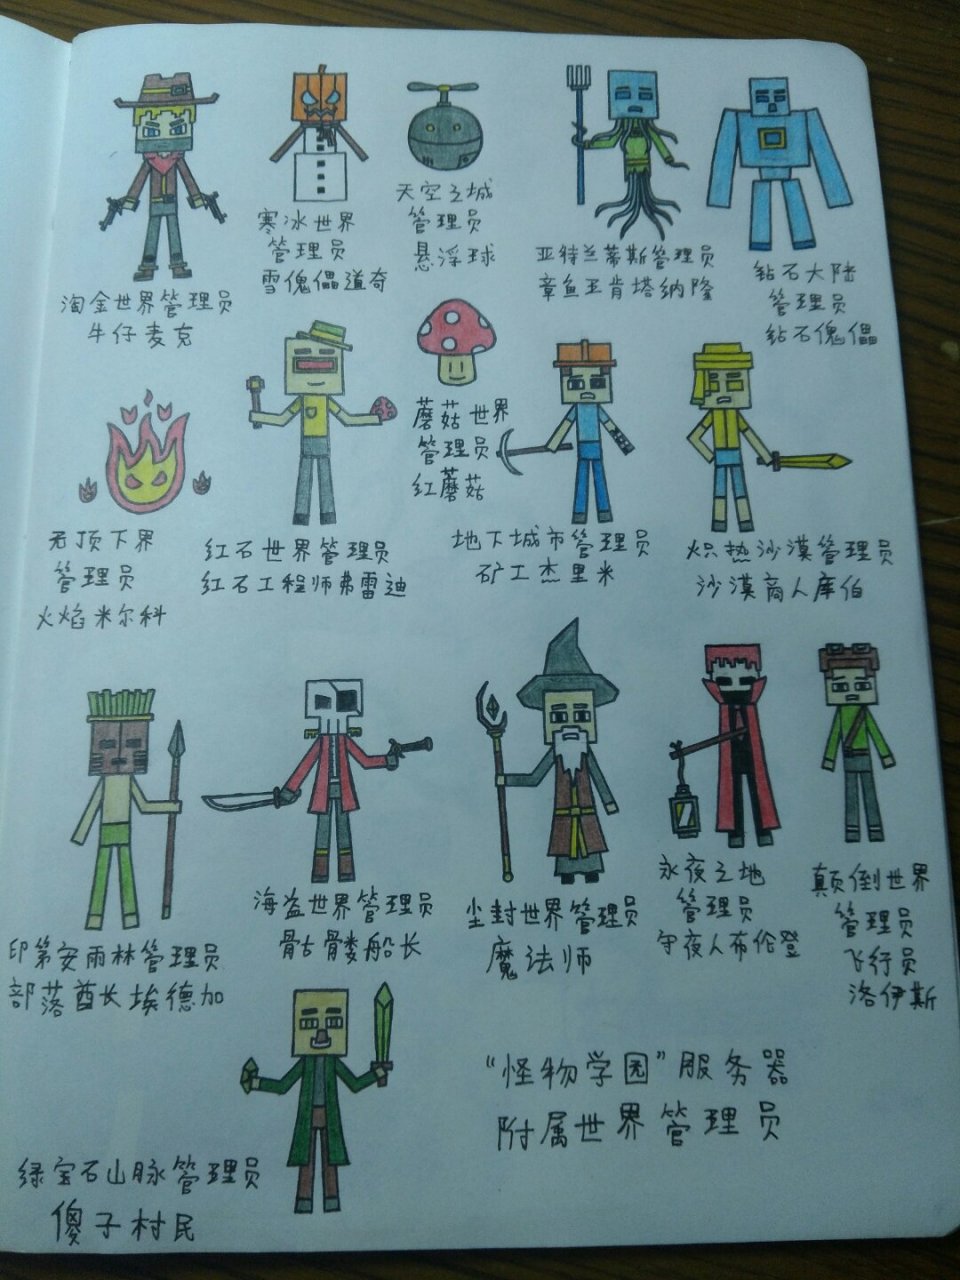 淘金世界管理员
牛仔麦克
寒冰世界
管理员
雪傀儡道奇
天空之城
管理员
悬浮球
亚特兰蒂斯管理员
章鱼亚肯塔纳隆
钻石大陆
管理员
钻石傀儡
无顶下界
管理员
火焰米尔科
红石世界管理员
红石工程师弗雷迪
蘑菇世界
管理员
红蘑菇
地下城市管理员
矿工杰里米
炽热沙漠管理员
沙漠商人库伯
印第安雨林管理员
部落酋长埃德加
海盗世界管理员
骷髅船长
尘封世界管理员
魔法师
永夜之地
管理员
守夜人布伦登
颠倒世界
管理员
飞行员
洛伊斯
绿宝石山脉管理员
傻子村民
“怪物学园”服务器
附属世界管理员